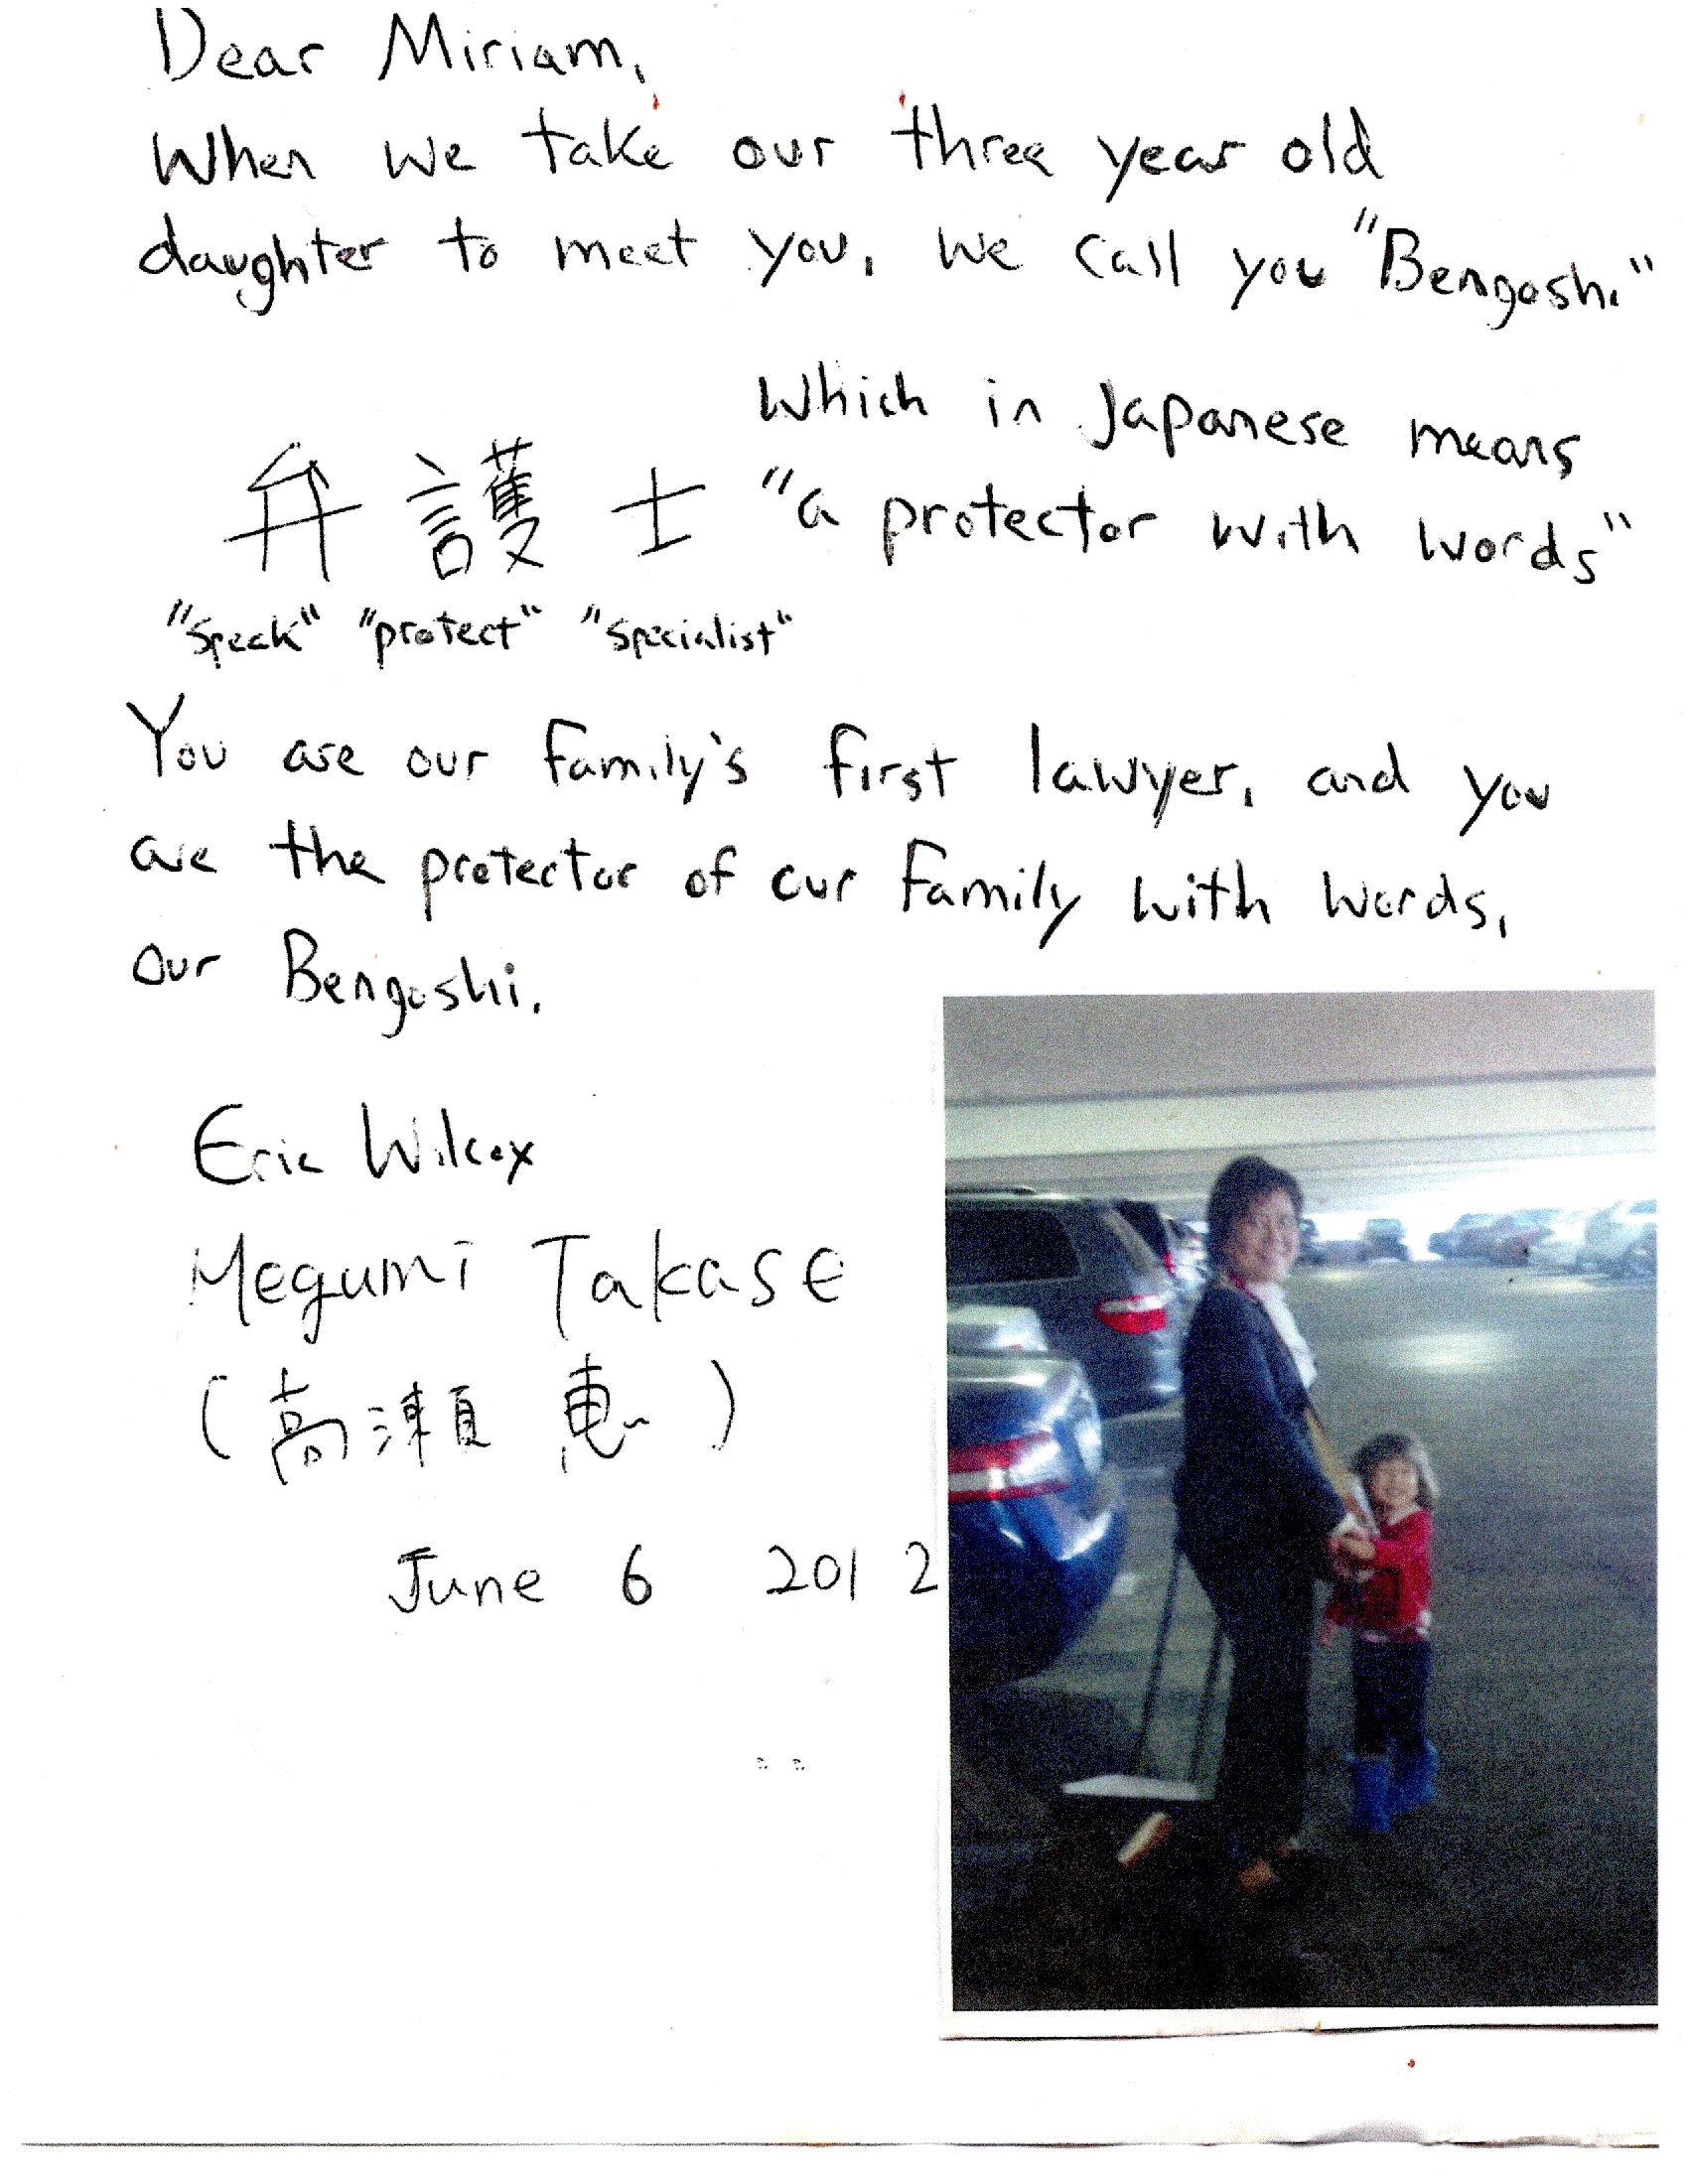 Dear Miriam,
When we take our three year old
daughter to meet you, we call you "Bengoshi"
Which in Japanese means
弁護士 "a protector with words"
"Speak" "protect" "specialist"
You are our family's first lawyer, and you
are the protector of our family with words,
our Bengoshi.
Eric Wilcox
Megumi Takase
(高瀬 恵)
June 6 2012